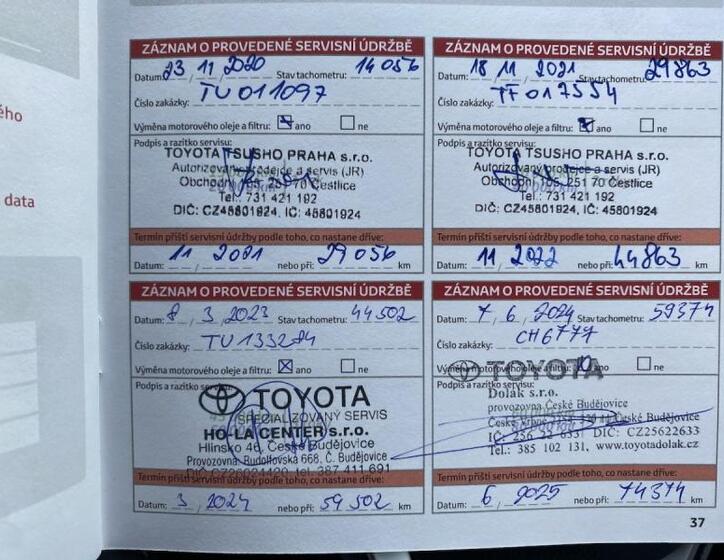 ého
data
ZÁZNAM O PROVEDENÉ SERVISNÍ ÚDRŽBĚ
Datum: 23 / 11 / 2020 Stav tachometru: 14 056
Číslo zakázky: TU011097
Výměna motorového oleje a filtru: ☒ ano ☐ ne
Podpis a razítko servisu:
TOYOTA TSUSHO PRAHA s.r.o.
Autorizovaný prodejce a servis (JR)
Obchodní 105, 251 70 Čestlice
Tel.: 731 421 192
DIČ: CZ45801924, IČ: 45801924
Termín příští servisní údržby podle toho, co nastane dříve:
Datum: 11 / 2021 nebo při: 29 056 km
ZÁZNAM O PROVEDENÉ SERVISNÍ ÚDRŽBĚ
Datum: 18 / 11 / 2021 Stav tachometru: 29863
Číslo zakázky: TF017554
Výměna motorového oleje a filtru: ☒ ano ☐ ne
Podpis a razítko servisu:
TOYOTA TSUSHO PRAHA s.r.o.
Autorizovaný prodejce a servis (JR)
Obchodní 105, 251 70 Čestlice
Tel.: 731 421 192
DIČ: CZ45801924, IČ: 45801924
Termín příští servisní údržby podle toho, co nastane dříve:
Datum: 11 / 2022 nebo při: 44863 km
ZÁZNAM O PROVEDENÉ SERVISNÍ ÚDRŽBĚ
Datum: 8 / 3 / 2023 Stav tachometru: 44502
Číslo zakázky: TU133284
Výměna motorového oleje a filtru: ☒ ano ☐ ne
Podpis a razítko servisu:
TOYOTA
SPECIALIZOVANÝ SERVIS
HO-LA CENTER s.r.o.
Hlinsko 46, České Budějovice
Provozovna: Budolfovská 668, Č. Budějovice
DIČ CZ26024420 tel. 387 411 691
Termín příští servisní údržby podle toho, co nastane dříve:
Datum: 3 / 2024 nebo při: 59 502 km
ZÁZNAM O PROVEDENÉ SERVISNÍ ÚDRŽBĚ
Datum: 7 / 6 / 2024 Stav tachometru: 59374
Číslo zakázky: CH6777
Výměna motorového oleje a filtru: ano ☐ ne
TOYOTA
Podpis a razítko servisu:
Dolák s.r.o.
provozovna České Budějovice
České Budějovice
IČ: 256 22 633, DIČ: CZ25622633
Tel.: 385 102 131, www.toyotadolak.cz
Termín příští servisní údržby podle toho, co nastane dříve:
Datum: 6 / 2025 nebo při: 74374 km
37